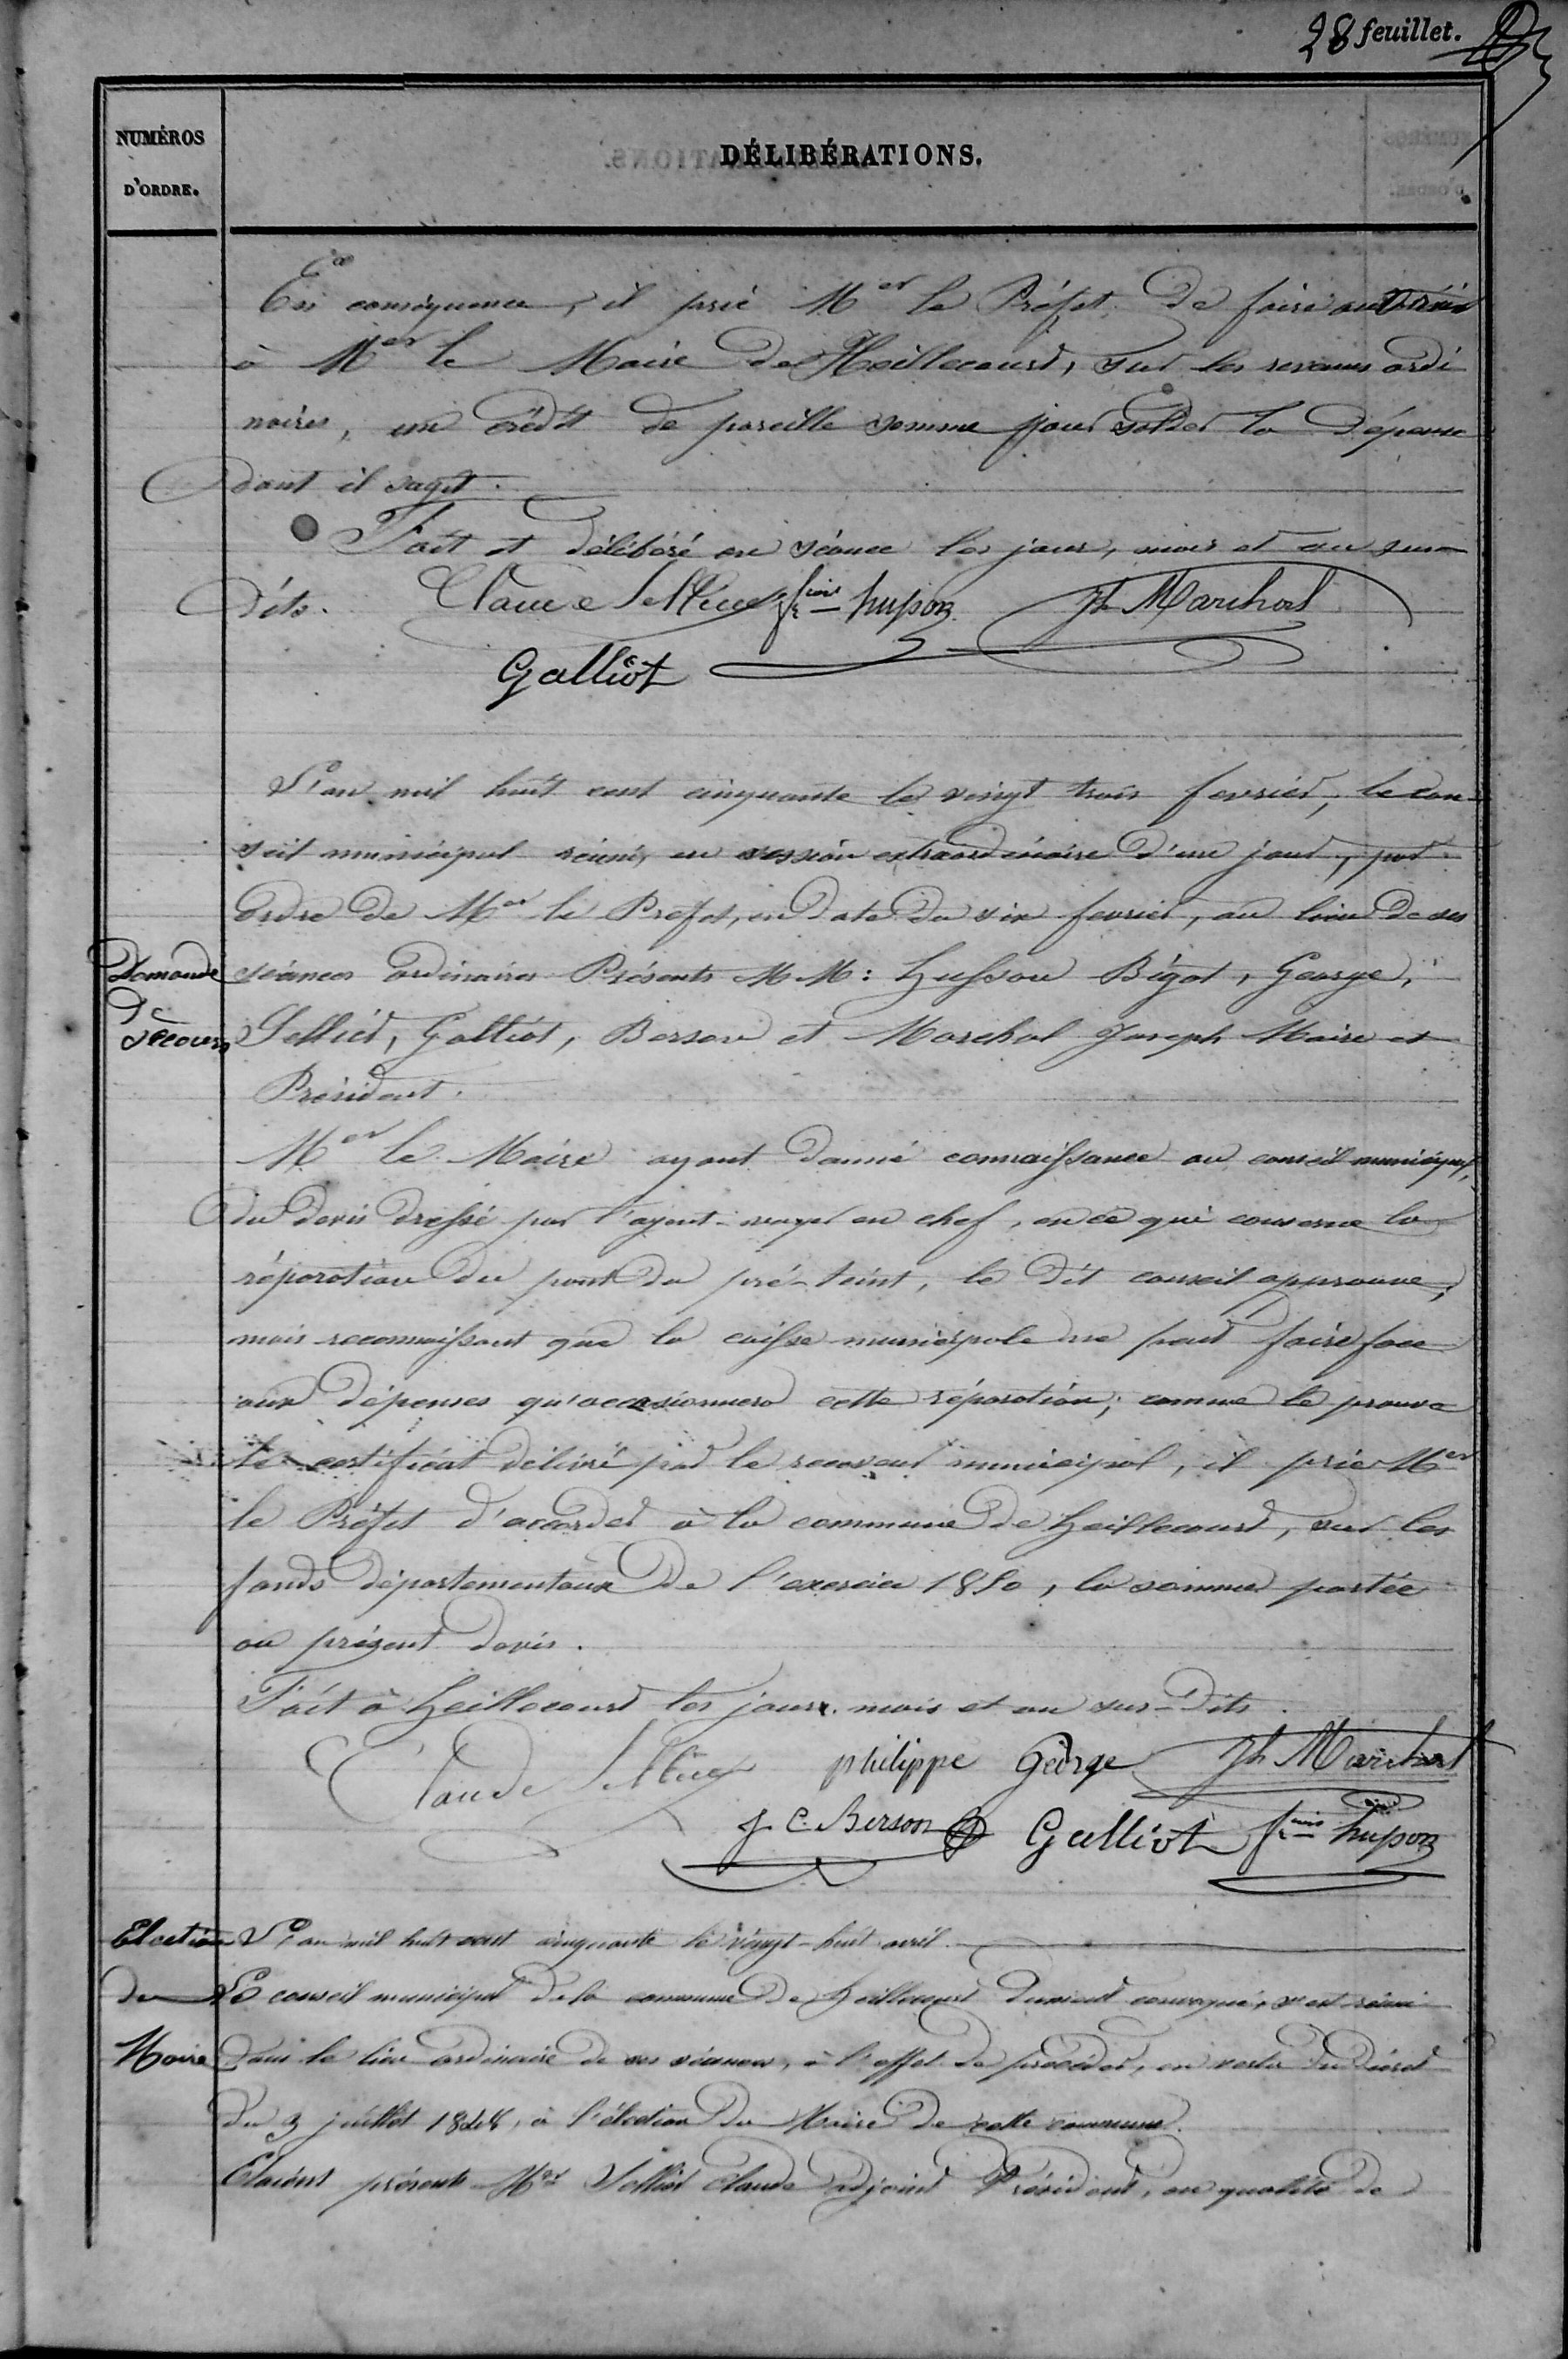 28 feuillet.
NUMÉROS
D'ORDRE.
DÉLIBÉRATIONS.
En conséquence, il prie Mer le Préfet de faire
à Mer le Maire de Heillecourt, sur les revenus ordi
naires, un crédit de pareille somme pour solder la dépense
dont il sagit.
Fait et délibéré en séance les jour, mois et an sus
dits. Claude Sellier fcois husson Jh Marchal
Galliot
L'an mil huit cent cinquante le vingt trois fevrier, le con-
seil municipal réuni, en session extraordinaire d'un jour, par
ordre de Mer le Préfet, en date du six fevrier, au lieu de ses
Demande
de
secours
séances ordinaires Présents MM: Husson Bigot, George,
Sellier, Galliot, Berson et Marchal Joseph Maire et
Président.
Mer le Maire ayant donné connaissance au conseil municipal,
du devis dressé par l'agent-voyer en chef, en ce qui concerne la
réparation du pont du pré-teint, le dit conseil approuve;
mais reconnaissant que la caisse municipale ne peut faire face
aux dépenses qu'occasionnera cette réparation; comme le prouve
le certificat délivré par le receveur municipal, il prie Mer
le Préfet d'accorder à la commune de heillecourt, sur les
fonds départementaux de l'exercice 1850, la somme portée
au présent devis.
Fait à heillecourt les jour. mois et an sus-dits.
Claude Sellier philippe George Jh Marchal
J. C. Berson Galliot fcois husson
Election
du
Maire
L'an mil huit cent cinquante le vingt-huit avril.
Le conseil municipal de la commune de heillecourt dument convoqué, s'est réuni
dans le lieu ordinaire de ses séances, à l'effet de procéder, en vertu du décret
du 3 juillet 1848, à l'élection du Maire de cette commune.
Etaient présents Mer Sellier Claude adjoint Président, en qualité de